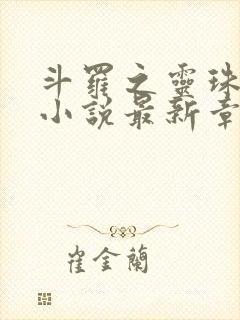 斗羅之靈珠
小說最新章
崔金蘭